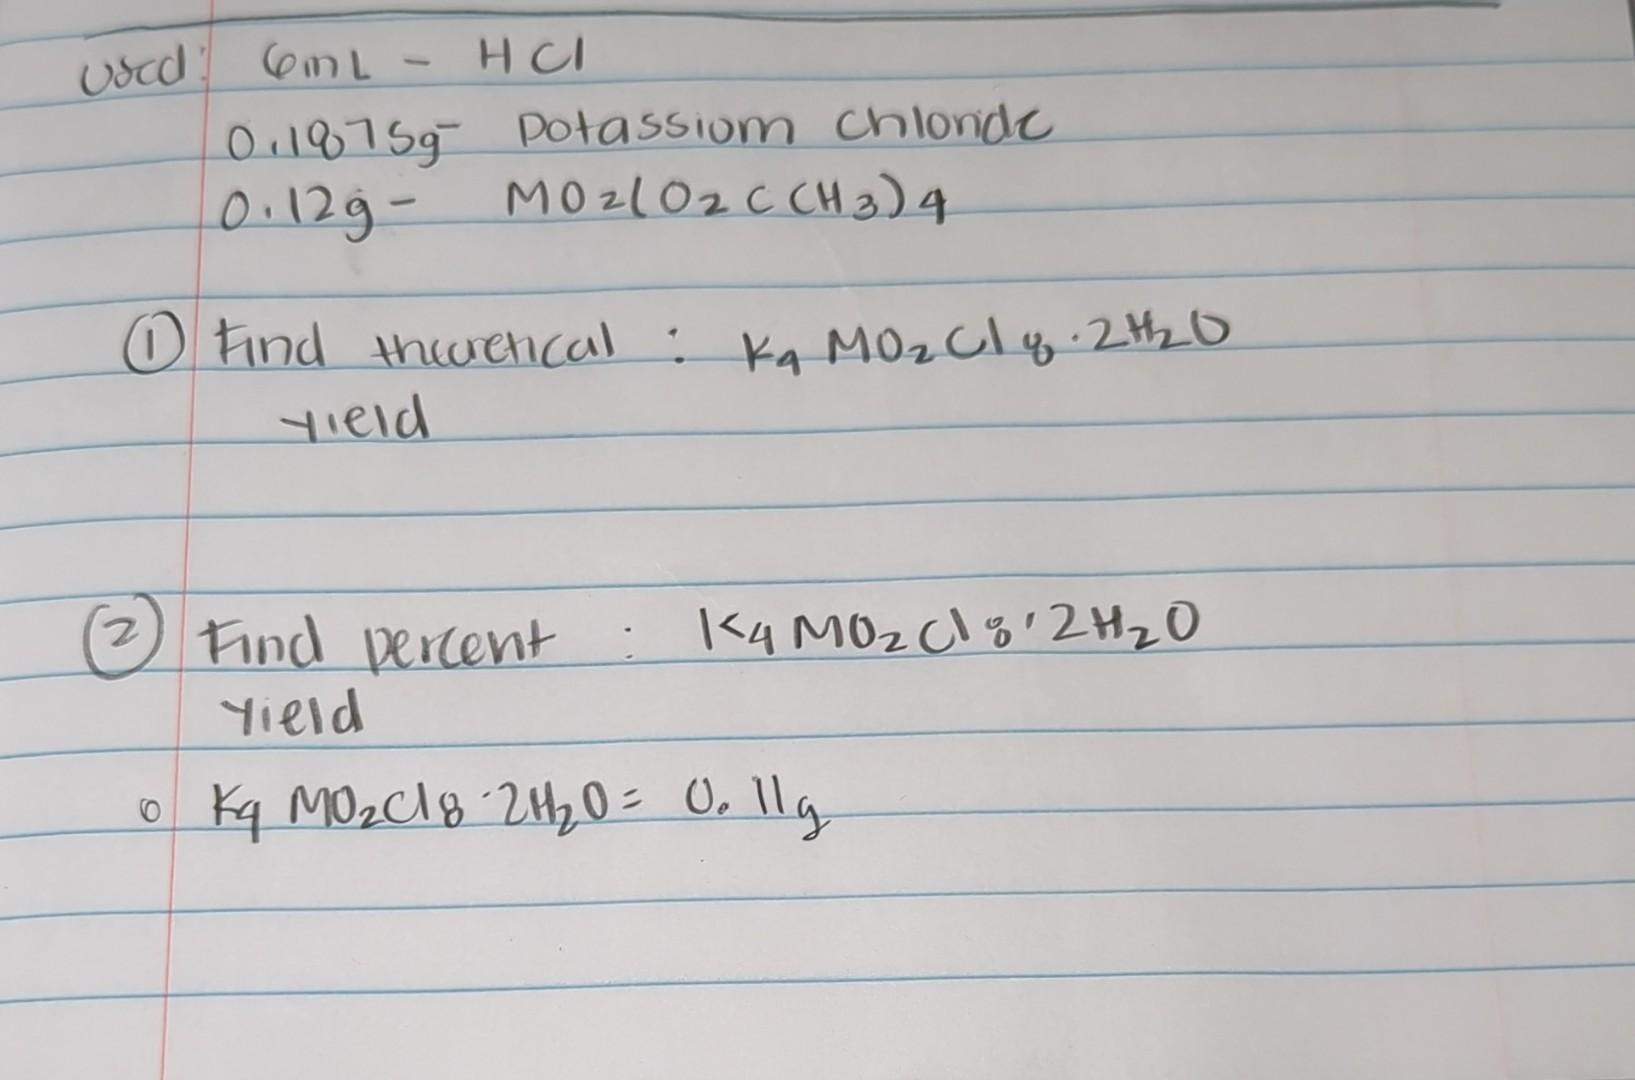 used: 6mL - HCl
0.1875g- potassium chloride
0.12g- MO2(O2CCH3)4
① Find theoretical : K4 MO2Cl8·2H2O
yield
② Find percent : K4 MO2Cl8·2H2O
Yield
o K4 MO2Cl8·2H2O= 0.11g